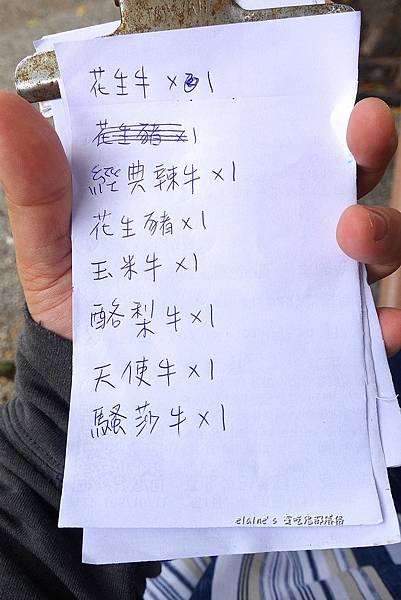 花生牛 x 1
花生豬 x 1
經典辣牛 x 1
花生豬 x 1
玉米牛 x 1
酪梨牛 x 1
天使牛 x 1
騷莎牛 x 1
elaine's 愛吃鬼部落格